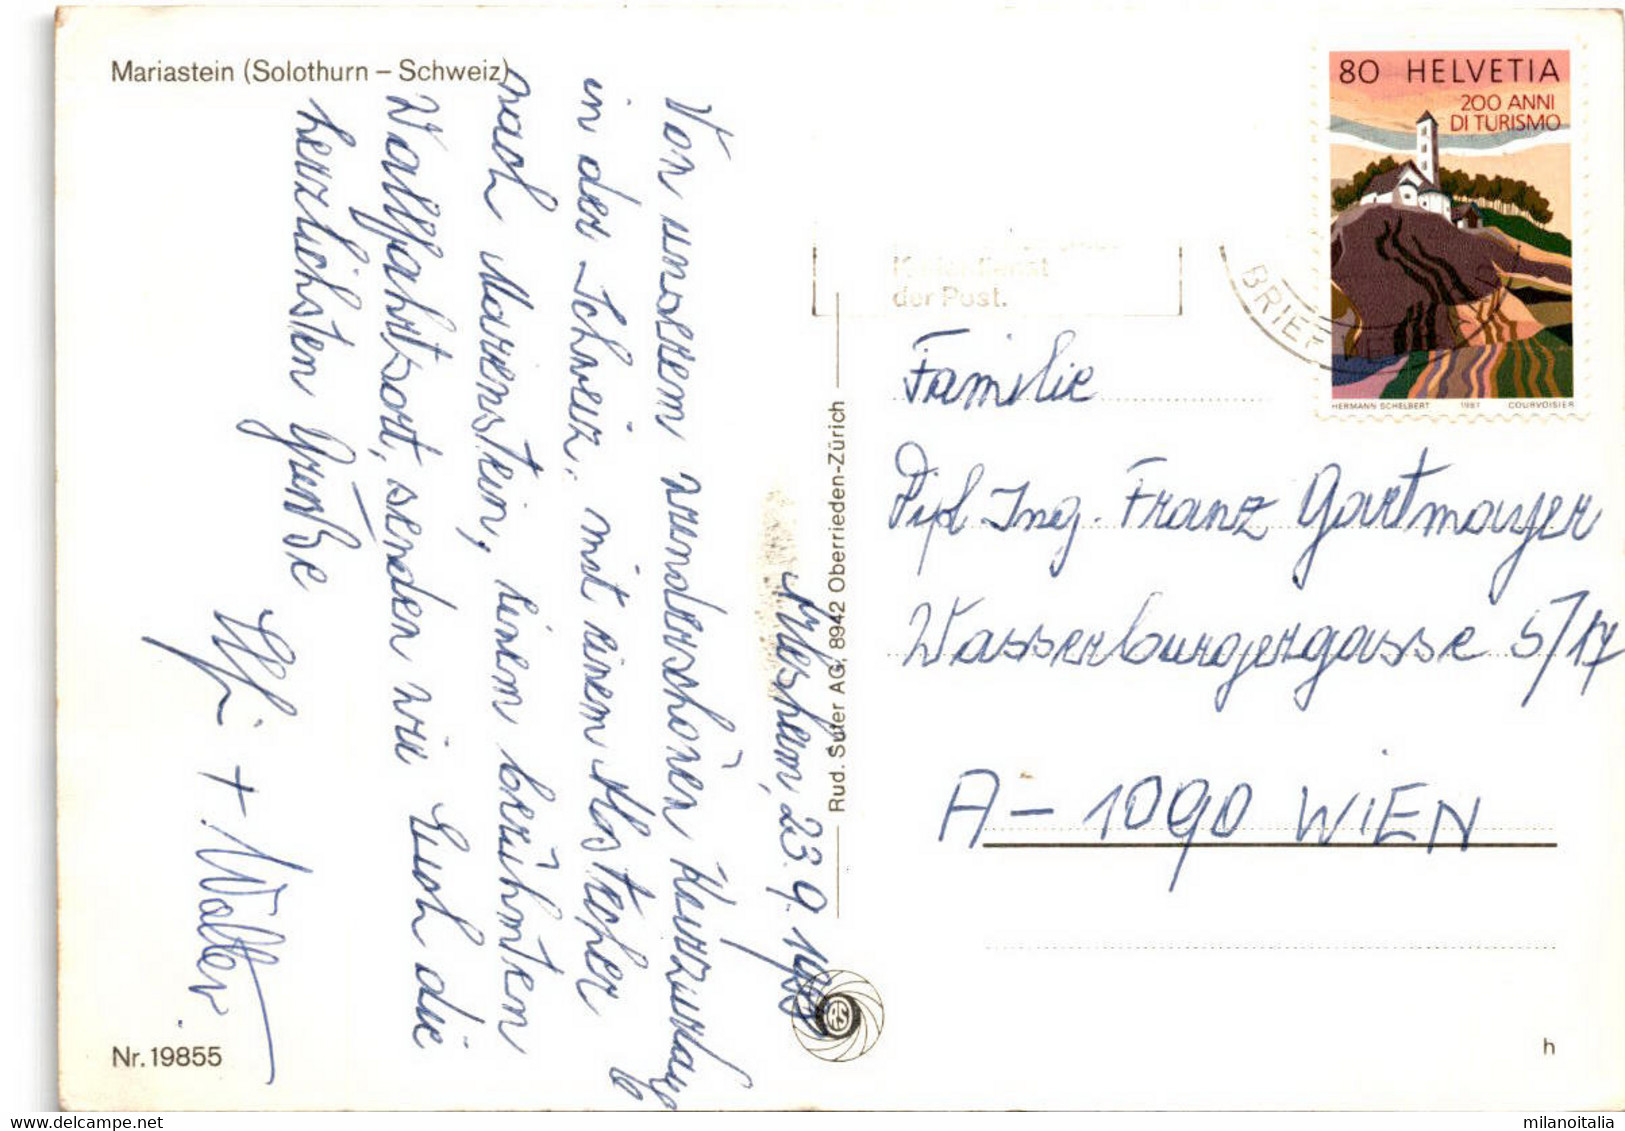 Mariastein (Solothurn – Schweiz)
23.9.
Von unserem wunderschönen Kurzurlaub
in der Schweiz, mit einem Abstecher
nach Marienstein, einem berühmten
Wallfahrtsort, senden wir Euch die
herzlichsten Grüße
+ Walter
Nr. 19855
Rud. Suter AG, 8942 Oberrieden-Zürich
RS
der Post.
BRIEF
80 HELVETIA
200 ANNI
DI TURISMO
HERMANN SCHELBERT 1987 COURVOISIER
Familie
Dipl Ing. Franz Gartmayer
Wasserburgergasse 5/17
A-1090 WIEN
h
www.delcampe.net
milanoitalia